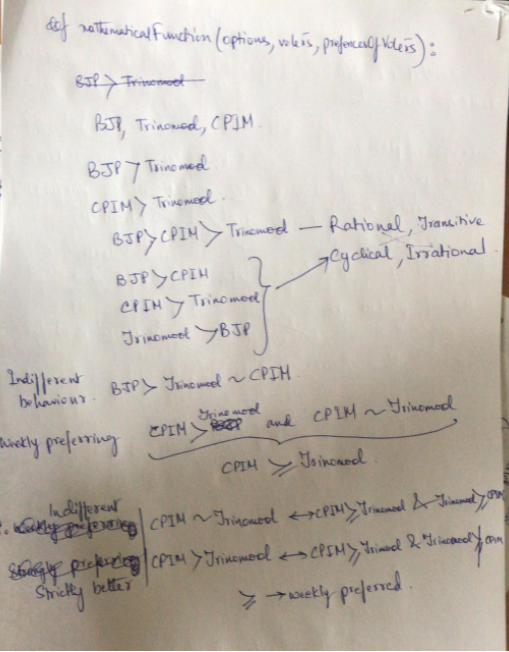 def mathematicalFunction(options, voters, preferencesOfVoters):
BJP > Trinomool
BJP, Trinomool, CPIM
BJP > Trinomool
CPIM > Trinomool
BJP > CPIM > Trinomool — Rational, Transitive
BJP > CPIM
Cyclical, Irrational.
CPIM > Trinomool
Trinomool > BJP
Indifferent behaviour. BJP > Trinomool ~ CPIM
Weekly preferring CPIM > Trinomool and CPIM ~ Trinomool
CPIM ⩾ Trinomool
Indifferent CPIM ~ Trinomool ↔ CPIM ⩾ Trinomool & Trinomool ⩾ CPIM
Strictly better CPIM > Trinomool ↔ CPIM ⩾ Trinomool & Trinomool ⋡ CPIM
⩾ → weekly preferred.